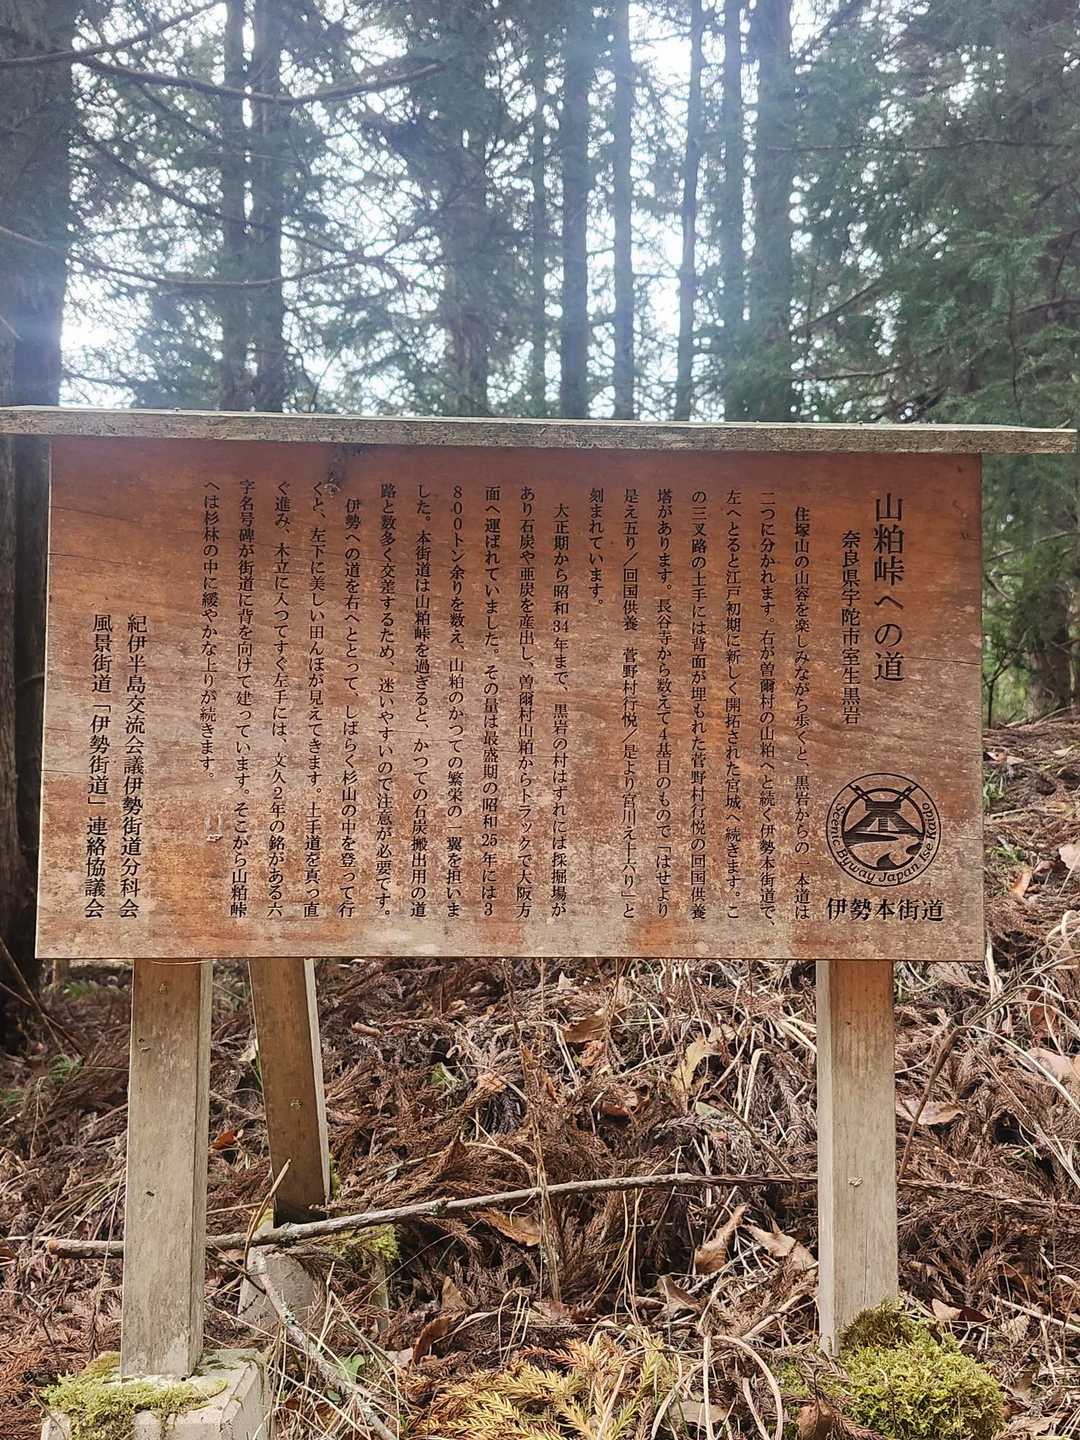 山粕峠への道
奈良県宇陀市室生黒岩
住塚山の山容を楽しみながら歩くと、黒岩からの一本道は
二つに分かれます。右が曽爾村の山粕へと続く伊勢本街道で、
左へとると江戸初期に新しく開拓された宮城へ続きます。こ
の三叉路の土手には背面が埋もれた菅野村行悦の回国供養
塔があります。長谷寺から数えて4基目のもので「はせより
是え五り／回国供養 菅野村行悦／是より宮川え十六り」と
刻まれています。
大正期から昭和34年まで、黒岩の村はずれには採掘場が
あり石炭や亜炭を産出し、曽爾村山粕からトラックで大阪方
面へ運ばれていました。その量は最盛期の昭和25年には3
800トン余りを数え、山粕のかつての繁栄の一翼を担いま
した。本街道は山粕峠を過ぎると、かつての石炭搬出用の道
路と数多く交差するため、迷いやすいので注意が必要です。
伊勢への道を右へととって、しばらく杉山の中を登って行
くと、左下に美しい田んぼが見えてきます。土手道を真っ直
ぐ進み、木立に入ってすぐ左手には、文久2年の銘がある六
字名号碑が街道に背を向けて建っています。そこから山粕峠
へは杉林の中に緩やかな上りが続きます。
紀伊半島交流会議伊勢街道分科会
風景街道「伊勢街道」連絡協議会
Scenic Byway Japan Ise Kaido
伊勢本街道